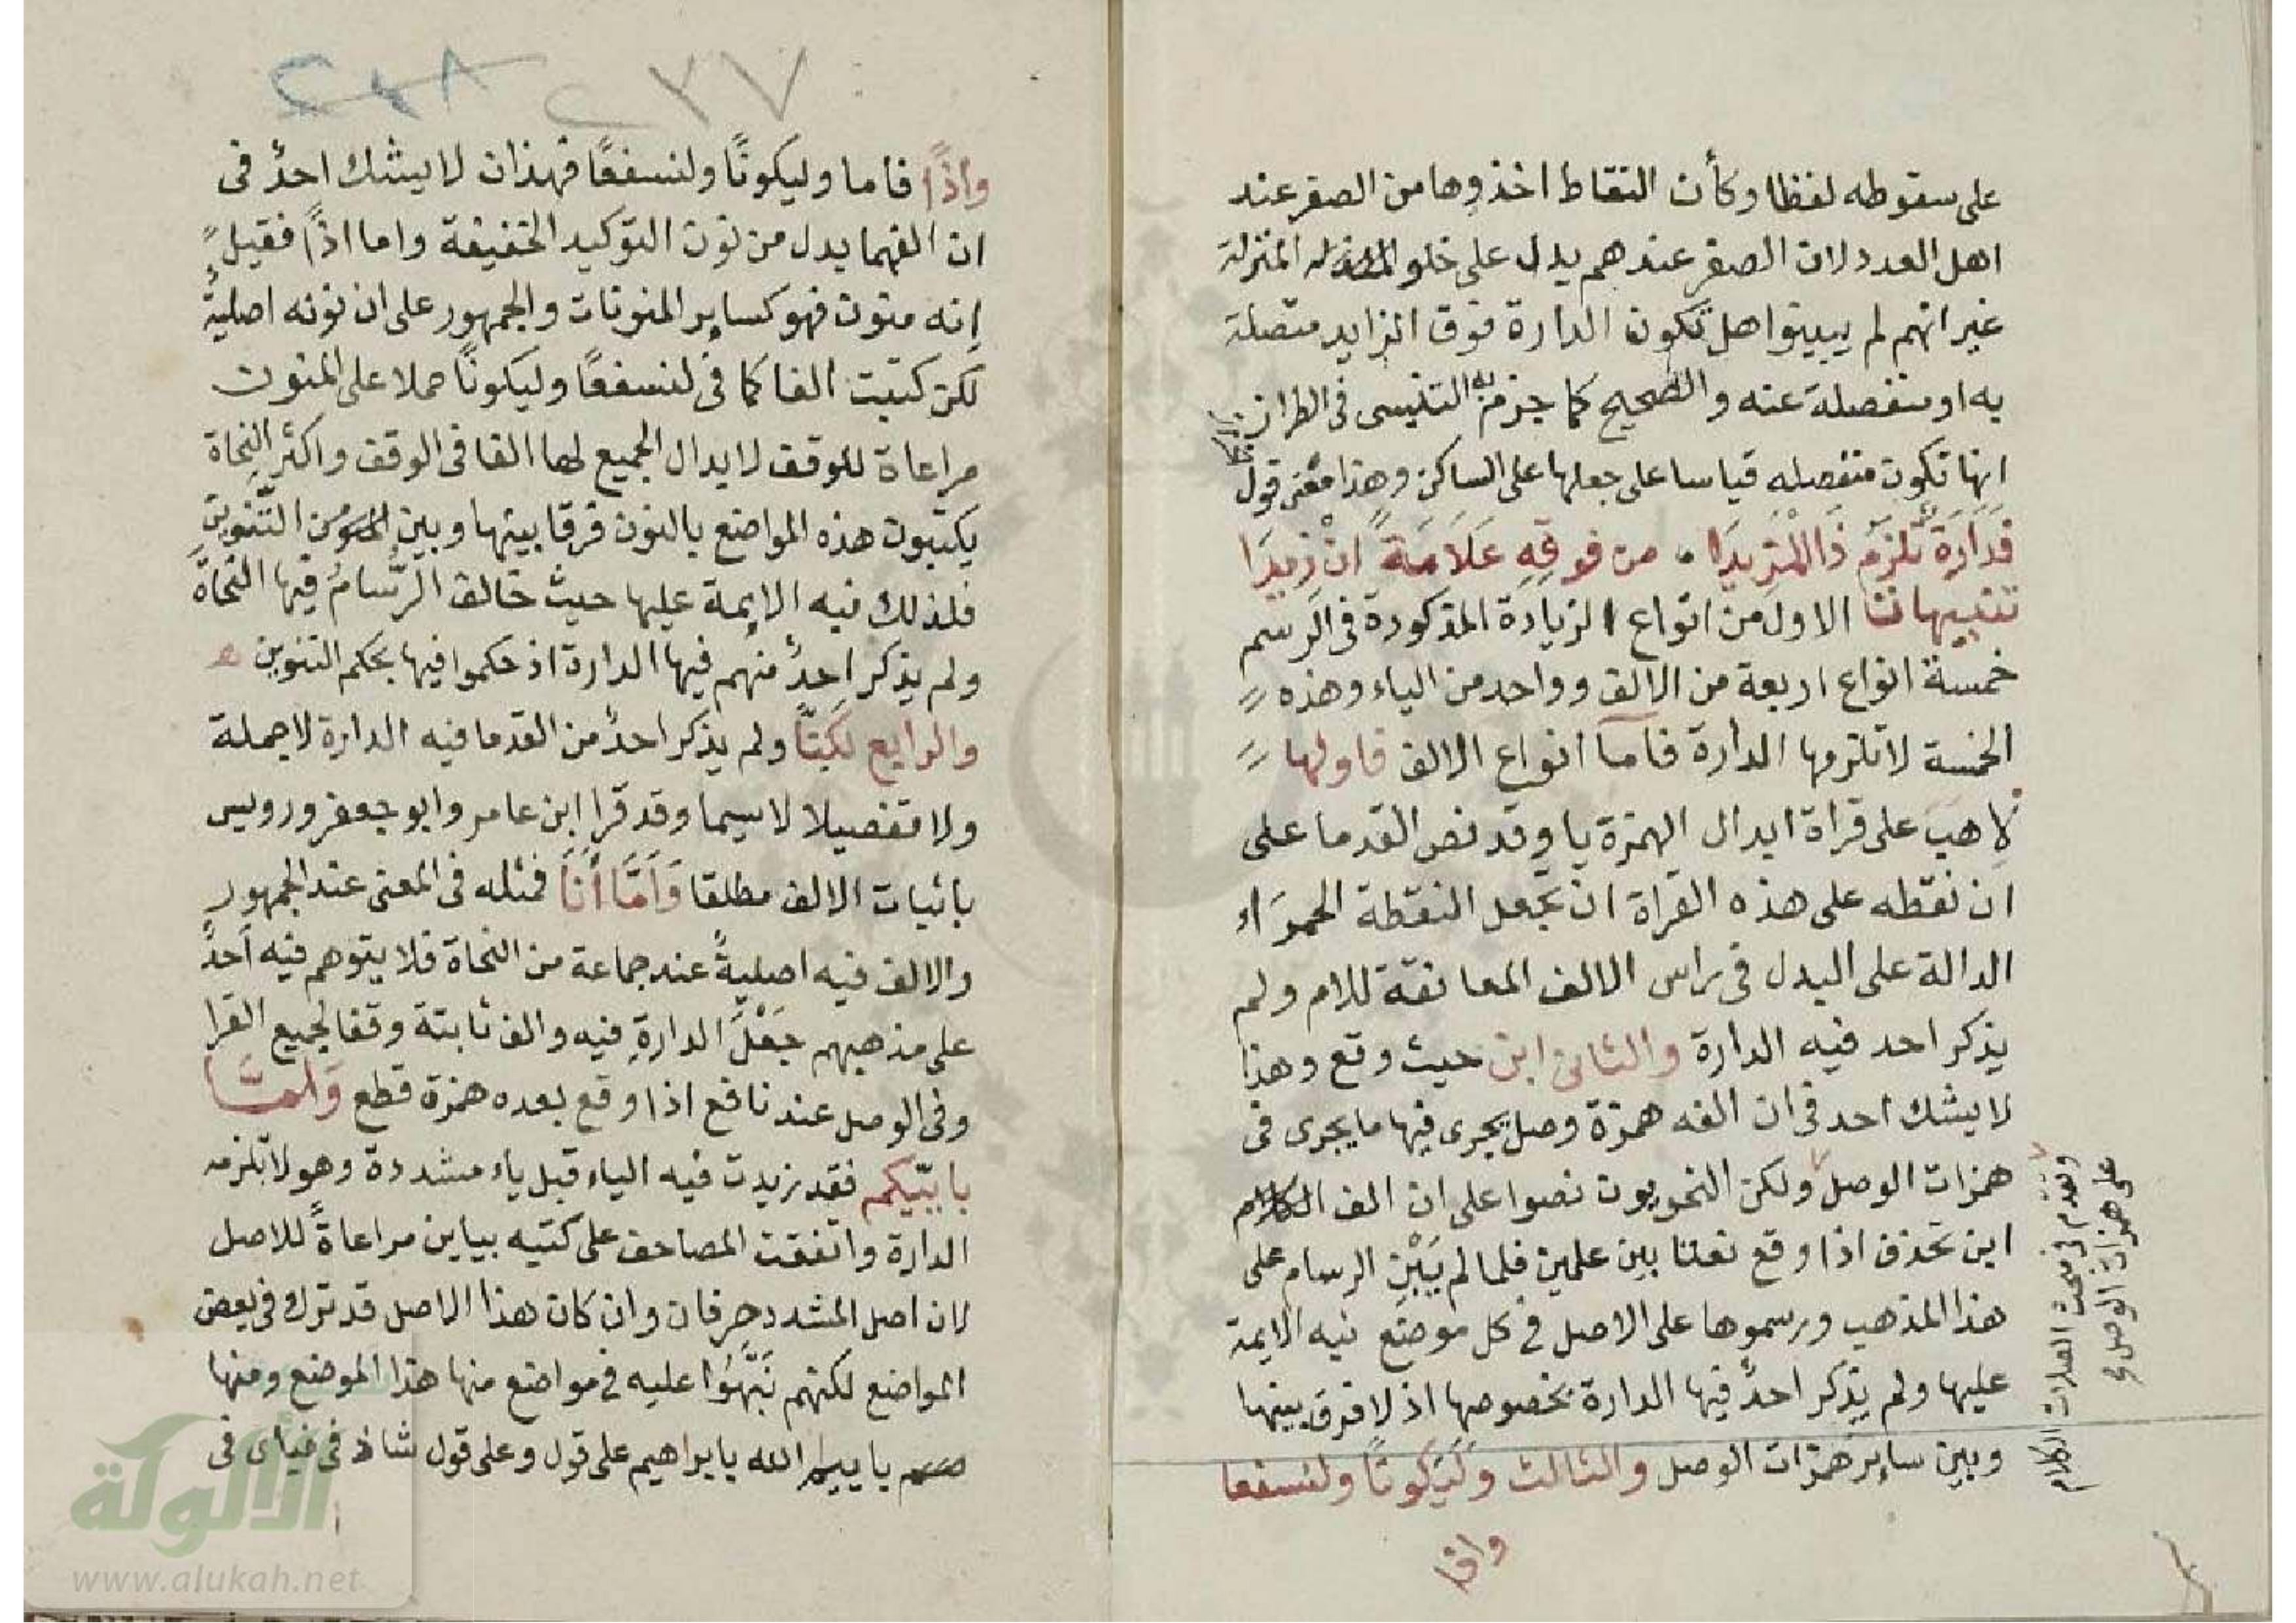 على سقوطه لفظا وكأن النقاط اخذوها من الصفر عند
اهل العدد لان الصفر عندهم يدل على خلو المنزلة
غير انهم لم يبينوا هل تكون الدارة فوق الزايد متصلة
به او منفصلة عنه والصحيح كما جزم به التنسى فى الطراز
انها تكون منفصله قياسا على جعلها على الساكن وهذا معنى قول
فَدَارَةٌ تَلْزَمُ ذَا الْمَزِيدَا ، من فوقِهِ عَلَامَةً اَنْ زِيدَا
تنبيهات الاول من انواع الزيادة المذكورة فى الرسم
خمسة انواع اربعة من الالف وواحد من الياء وهذه
الخمسة لا تلزمها الدارة فاما انواع الالف فاولها
لِاهبَ على قراة ابدال الهمزة يا وقد نص القدما على
ان نقطه على هذه القراة ان تجعل النقطة الحمراء
الدالة على البدل فى راس الالف المعانقة للام ولم
يذكر احد فيه الدارة والثانى ابن حيث وقع وهذا
لا يشك احد فى ان الفه همزة وصل يجرى فيها ما يجرى فى
همزات الوصل ولكن النحويون نصوا على ان الف
ابن تحذف اذا وقع نعتا بين علمين فلما لم يَبْنِ الرسام على
هذا المذهب ورسموها على الاصل فى كل موضع نبه الايمة
عليها ولم يذكر احدٌ فيها الدارة بخصوصها اذ لا فرق بينها
وبين ساير همزات الوصل والثالث وَلَيَكُونًا ولنسفعا
واذا
وتقدم فى مبحث الصلات الكلام
على همزات الوصل
واذًا فاما وليكونًا ولنسفعًا فهذان لا يشك احدٌ فى
ان الفهما بدل من نون التوكيد الخفيفة واما اذًا فقيل
إنه منون فهو كساير المنونات والجمهور على ان نونه اصليةٌ
لكن كتبت الفا كما فى لنسفعًا وليكونًا حملا على المنون
مراعاة للوقف لابدال الجميع لها الفا فى الوقف واكثر النحاة
يكتبون هذه المواضع بالنون فرقا بينها وبين التّنوين
فلذلك نبه الايمة عليها حيث خالف الرُّسامُ فيها النحاةَ
ولم يذكر احدٌ منهم فيها الدارة اذ حكموا فيها بحكم التنوين
والرابع لَكِنَّا ولم يذكر احدٌ من القدما فيه الدارة لا جملة
ولا تفصيلا لا سيما وقد قرا ابن عامر وابو جعفر ورويس
باثبات الالف مطلقا وَاَمَّا أَنَا فمثله فى المعنى عند الجمهور
والالف فيه اصليةٌ عند جماعة من النحاة فلا يتوهم فيه اَحدٌ
على مذهبهم جَعْلَ الدارةِ فيه والف ثابتة وقفا لجميع القرا
وفى الوصل عند نافع اذا وقع بعده همزة قطع وَامَّا
بِاَيِيّكم فقد زيدت فيه الياء قبل ياء مشددة وهو لا تلزمه
الدارة واتفقت المصاحف على كتبه بياين مراعاةً للاصل
لان اصل المشدد حرفان وان كان هذا الاصل قد ترك فى بعض
المواضع لكنهم نَبَّهُوا عليه فى مواضع منها هذا الموضع ومنها
باييم الله يابراهيم على قول وعلى قول شاذ فى فبأى فى
٢٣٧
الألوكة
www.alukah.net